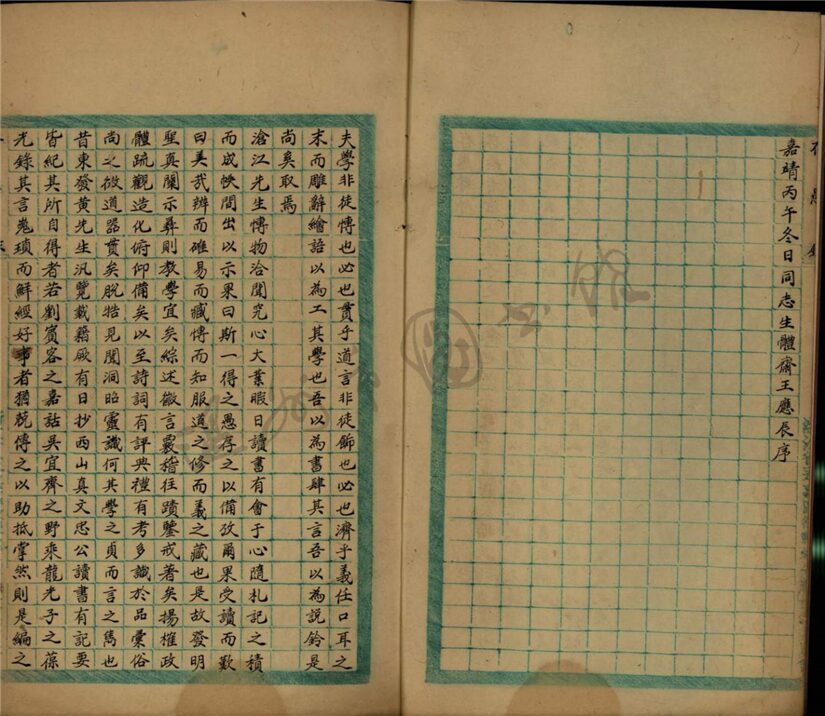 嘉靖丙午冬日同志生體齋王應辰序
夫學非徒博也必也貫乎道言非徒飾也必也濟乎義任口耳之
末而雕辭繪語以為工其學也吾以為書肆其言吾以為説鈴是
尚奚取焉
滄江先生博物洽聞究心大業暇日讀書有會于心隨札記之積
而成帙間出以示果曰斯一得之愚存之以備攷爾果受讀而歎
曰美哉辨而確易而臧博而知服道之修而義之藏也是故發明
聖真闡示彞則教學宜矣綜述徽言裒稽往蹟鑒戒著矣揚榷政
體疏觀造化俯仰備矣以至詩詞有評典禮有考多識於品彙俗
尚之微道器貫矣脫牿見聞洞昭靈識何其學之貞而言之雋也
昔東發黄先生汎覽載籍厥有日抄西山真文忠公讀書有記要
皆紀其所自得者若劉賓客之嘉話吳宜齊之野乘龍光子之葆
光錄其言嵬瑣而鮮經好事者猶兢傳之以助抵掌然則是編之